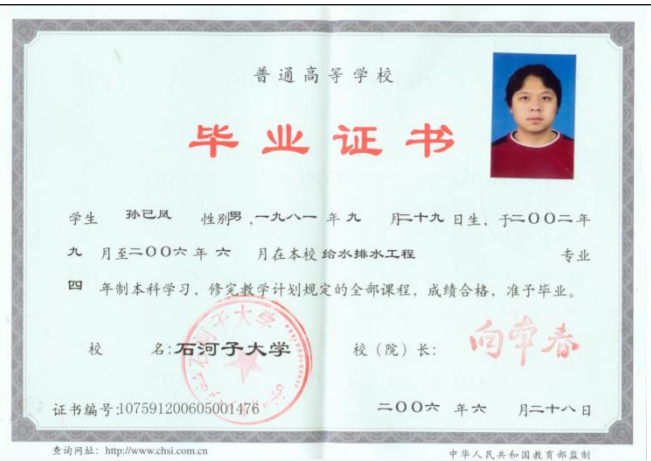 普通高等学校
毕业证书
学生 孙己凤 性别男,一九八一年九月二十九日生,于二〇〇二年
九月至二〇〇六年六月在本校给水排水工程 专业
四年制本科学习,修完教学计划规定的全部课程,成绩合格,准予毕业。
校 名:石河子大学 校(院)长:
证书编号:107591200605001476 二〇〇六年六月二十八日
查询网址:http://www.chsi.com.cn 中华人民共和国教育部监制